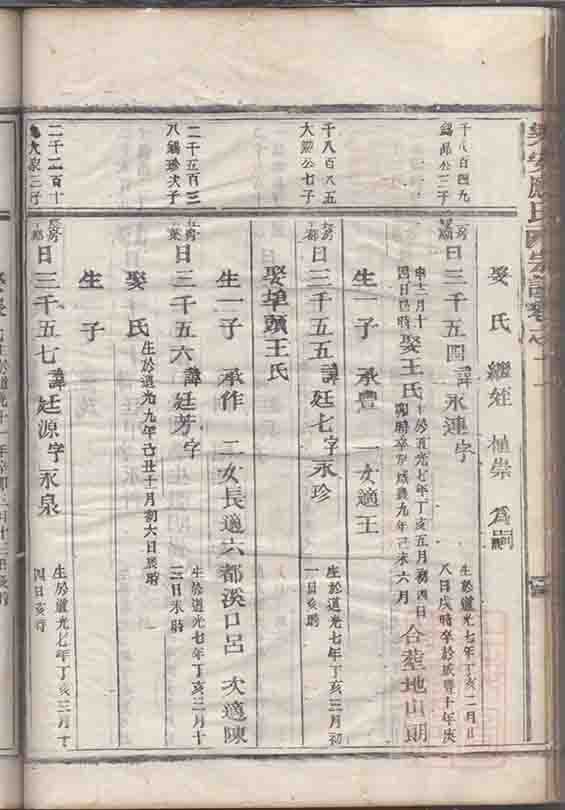 應氏西宗譜卷之二
娶氏 繼姪 植崇 為嗣
千八百四九
公二子
房
日三千五四諱永連字
生於道光七年丁亥二月
八日戌時卒於咸豐十年庚
申十二月十
四日巳時
娶王氏
生於道光七年丁亥五月初四日
卯時卒於咸豐九年己未六月
合葬地山朗
生一子 承豊 一女適王
千八百八五
大公七子
房
日三千五五諱廷七字永珍
生於道光七年丁亥三月初
一日亥時
娶埠頭王氏
生一子 承作 二女長適六都溪口呂 次適陳
二千五百三
八錫珍次子
房
日三千五六諱廷芳字
生於道光七年丁亥三月十
三日未時
娶氏
生於道光九年己丑十月初六日辰時
生子
二千二百十
泉三子
房
日三千五七諱廷源字永泉
生於道光七年丁亥三月十
四日亥時